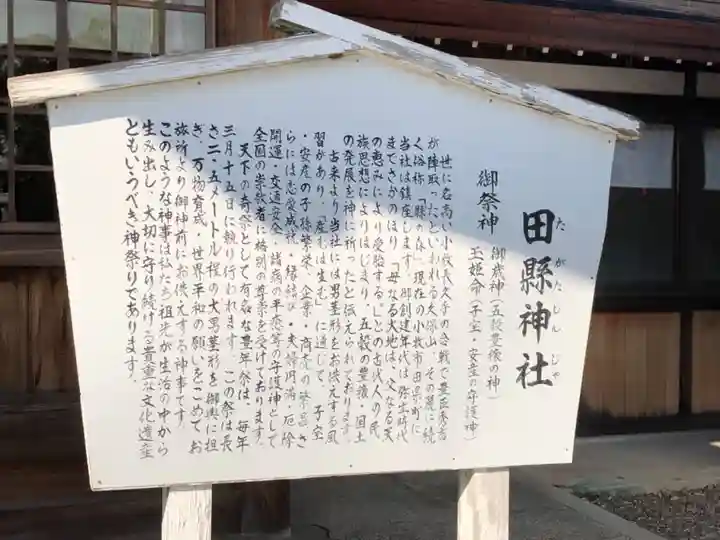 田縣神社
たがたじんじゃ
御祭神 御歳神(五穀豊穣の神)
玉姫命(子宝・安産の守護神)
世に名高い小牧長久手の合戦で豊臣秀吉
が陣取ったといわれる大塚山、その麓に続
く俗称「縣の森」現在の小牧市田県町に
当社は鎮座します。御創建年代は弥生時代
までさかのぼり、「母なる大地は、父なる天
の恵みにより受胎する。」との古代人の民
族思想によりはじまり、五穀の豊穣・国土
の発展を神に祈ったと伝えられております。
古来より当社には男茎形をお供えする風
習があり、「産むは生む」に通じて、子宝
・安産の子孫繁栄、企業・商売の繁昌さ
らには恋愛成就・縁結び・夫婦円満・厄除
開運・交通安全・諸病の平癒等の守護神として
全国の崇敬者に格別の尊崇を受けております。
天下の奇祭として有名な豊年祭は、毎年
三月十五日に執り行われます。この祭は長
さ二・五メートル程の大男茎形を御輿に担
ぎ、万物育成・世界平和の願いをこめてお
旅所より御神前にお供えする神事です。
このような神事は私たち祖先が生活の中から
生み出し、大切に守り続ける貴重な文化遺産
ともいうべき神祭りであります。